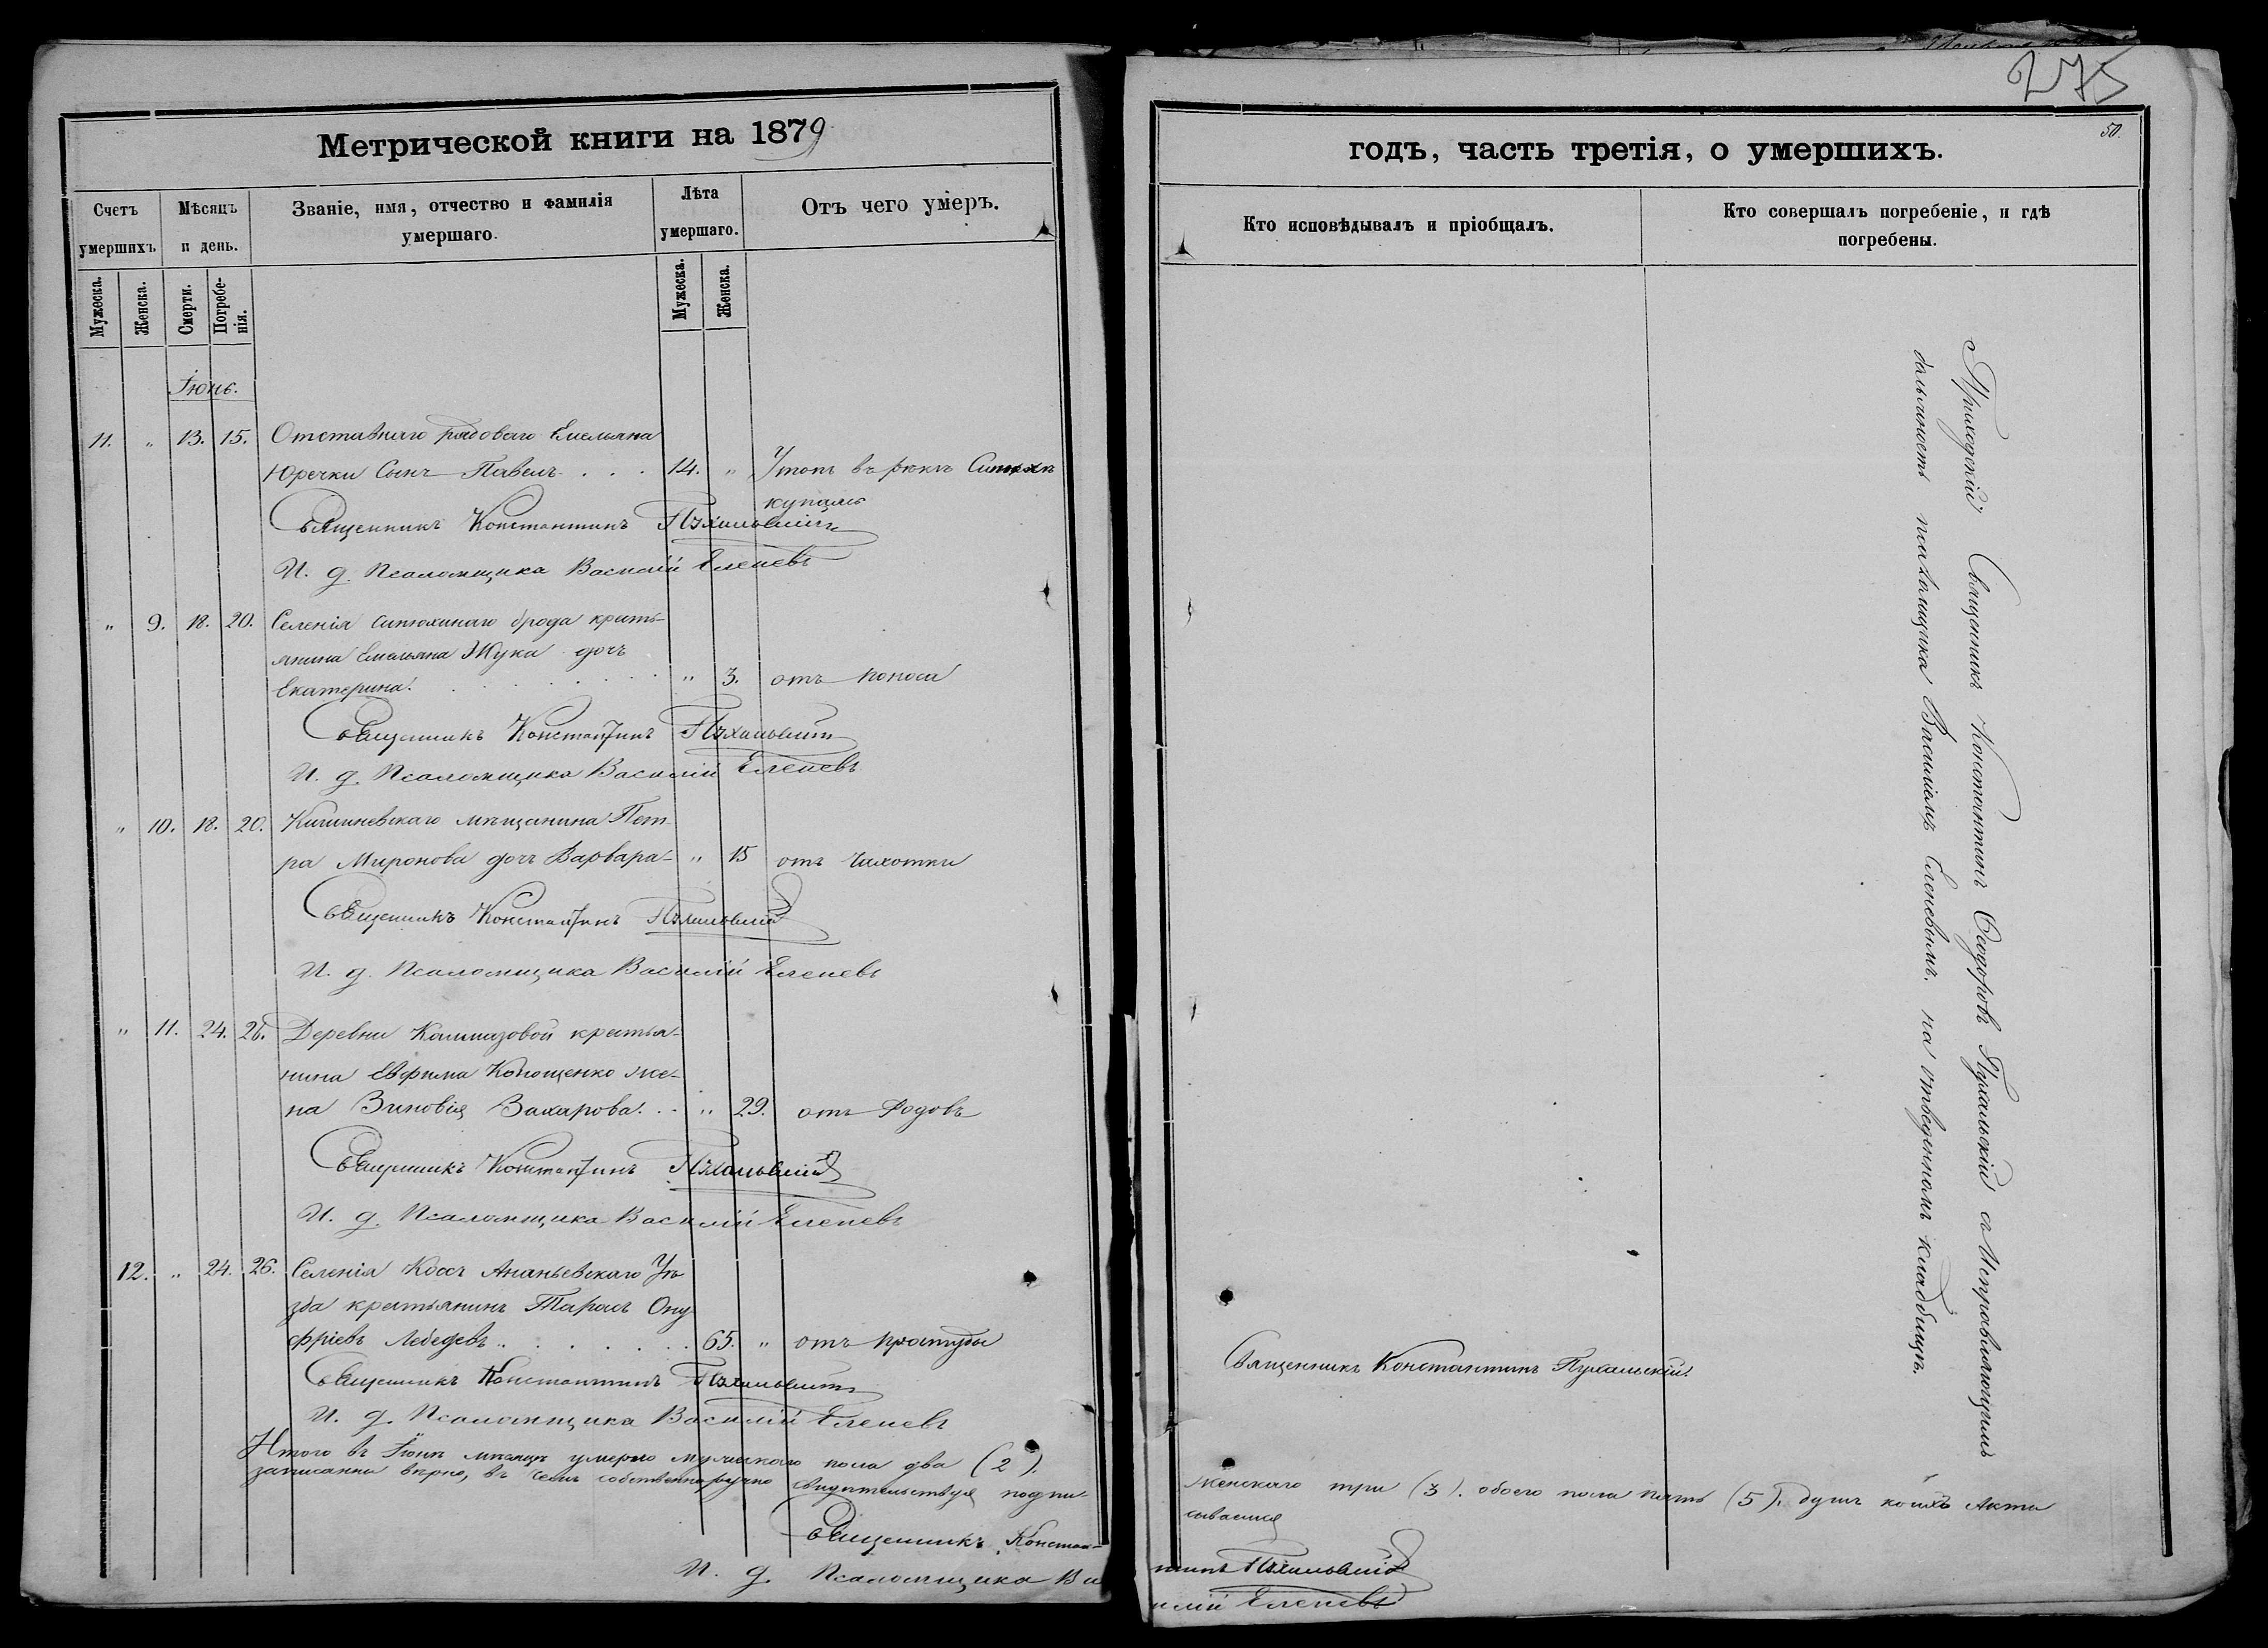 Метрической книги на 1879
Счетъ умершихъ
Мѣсяцъ и день.
Званіе, имя, отчество и фамилія умершаго.
Лѣта умершаго.
Отъ чего умеръ.
Мужеска.
Женска.
Смерти.
Погребенія.
Мужеска.
Женска.
Іюнь.
11. " 13. 15. Отставнаго рядоваго Емельяна
Юречки Сынъ Павелъ . . . 14. " Утопъ въ рѣкѣ
купаясь
Священникъ Константинъ Пухальскій
И. д. Псаломщика Василій Еленевъ
" 9. 18. 20. Селенія Синюхинаго брода кресть-
янина Емельяна Жука дочь
Екатерина. " 3. отъ поноса
Священникъ Константинъ Пухальскій
И. д. Псаломщика Василій Еленевъ
" 10. 18. 20. Кишиневскаго мѣщанина Пет-
ра Миронова дочь Варвара " 15 отъ чахотки
Священникъ Константинъ Пухальскій
И. д. Псаломщика Василій Еленевъ
" 11. 24. 26. Деревни Колмазовой крестья-
нина Евфима же-
на Зиновія Захарова. . . " 29. отъ родовъ
Священникъ Константинъ Пухальскій
И. д. Псаломщика Василій Еленевъ
12. " 24. 26. Селенія Ананьевскаго Уѣ-
зда крестьянинъ Тарасъ Ону-
фріевъ Лебедевъ . . . 65. " отъ простуды
Священникъ Константинъ Пухальскій
И. д. Псаломщика Василій Еленевъ
Итого въ Іюнѣ мѣсяцѣ умерло мужескаго пола два (2).
записанны вѣрно, въ чемъ собственноручно свидѣтельствуя подпи-
Священникъ Констан-
И. д. Псаломщика Ва
275
50.
годъ, часть третія, о умершихъ.
Кто исповѣдывалъ и пріобщалъ.
Кто совершалъ погребеніе, и гдѣ погребены.
Приходскій Священникъ Константинъ Ѳеодоровъ Пухальскій съ Исправляющимъ
должность псаломщика Василіемъ Еленевымъ. на отведенномъ кладбищѣ.
Священникъ Константинъ Пухальскій.
женскаго три (3). обоего пола пять (5). душъ коихъ Акты
сываемся
тинъ Пухальскій
илій Еленевъ